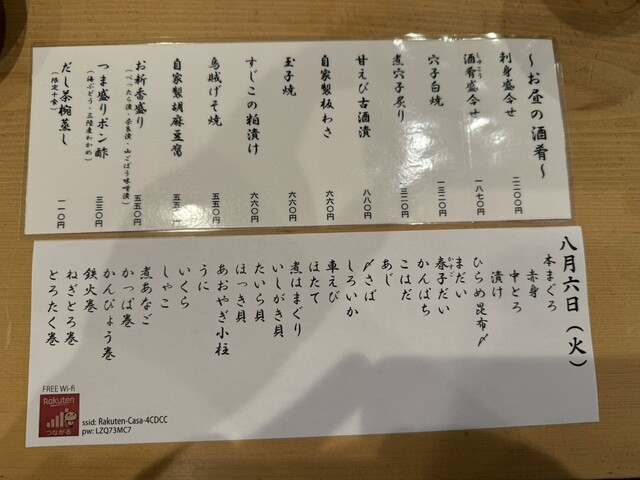 〜お昼の酒肴〜
刺身盛合せ 二二〇〇円
酒肴盛合せ 一八七〇円
しゅこう
穴子白焼 一三二〇円
煮穴子炙り 三二〇円
甘えび古酒漬 八八〇円
自家製板わさ 六六〇円
玉子焼 六六〇円
すじこの粕漬け 六六〇円
烏賊げそ焼 五五〇円
自家製胡麻豆腐 五五〇円
お新香盛り 五五〇円
（べったら漬・奈良漬・山ごぼう味噌漬）
つま盛りポン酢 三三〇円
（海ぶどう・三陸産わかめ）
だし茶椀蒸し 一一〇円
（限定十食）
八月六日（火）
本まぐろ
赤身
中とろ
漬け
ひらめ昆布〆
まだい
春子だい
かすご
かんぱち
こはだ
あじ
〆さば
しろいか
車えび
ほたて
煮はまぐり
いしがき貝
たいら貝
ほっき貝
あおやぎ小柱
うに
いくら
しゃこ
煮あなご
かっぱ巻
かんぴょう巻
鉄火巻
ねぎとろ巻
とろたく巻
FREE Wi-fi
Rakuten
つながる
ssid: Rakuten-Casa-4CDCC
pw: LZQ73MC7